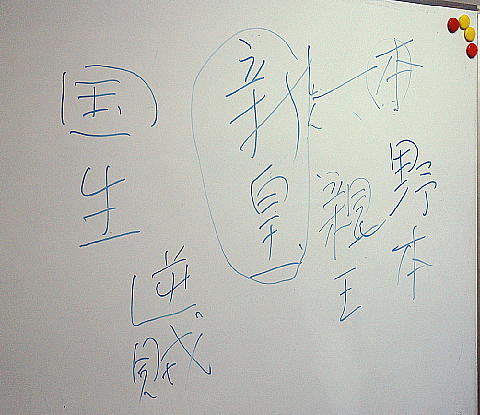 野本
親王
新皇
国生
逆賊